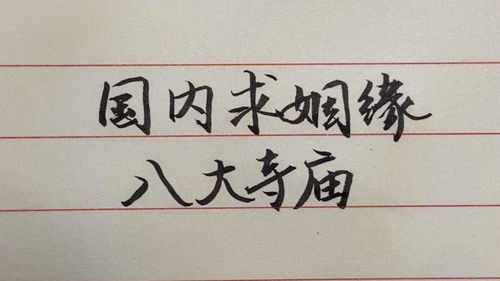 国内求姻缘
八大寺庙